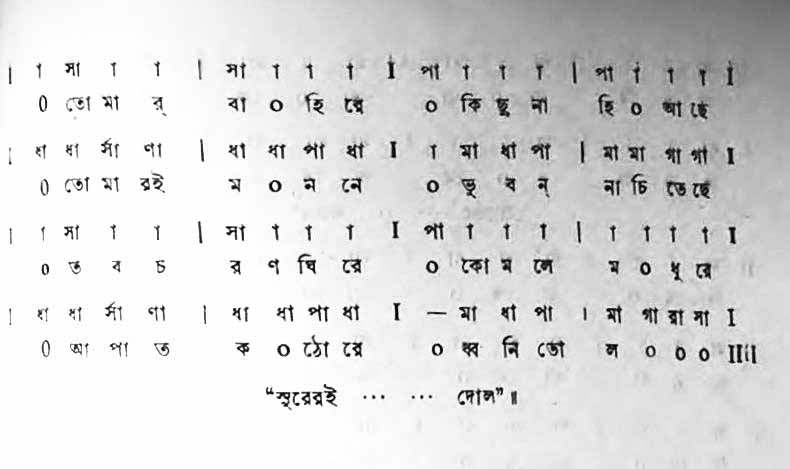 | া সা া া | সা া া া I পা া া া | পা া া া I
0 তো মা র্ বা ০ হি রে ০ কি ছু না হি ০ আ ছে
| ধা ধা র্সা ণা | ধা ধা পা ধা I া মা ধা পা | মা মা গা গা I
0 তো মা রই ম ০ ন নে ০ ভু ব ন্ না চি তে ছে
| া সা া া | সা া া া I পা া া া | া া া া I
০ ত ব চ র ণ ঘি রে ০ কো ম লে ম ০ ধু রে
| ধা ধা র্সা ণা | ধা ধা পা ধা I — মা ধা পা । মা গা রা সা I
0 আ পা ত ক ০ ঠো রে ০ ধ্ব নি তো ল ০ ০ ০ IIII
“সুরেরই ... ... দোল”॥